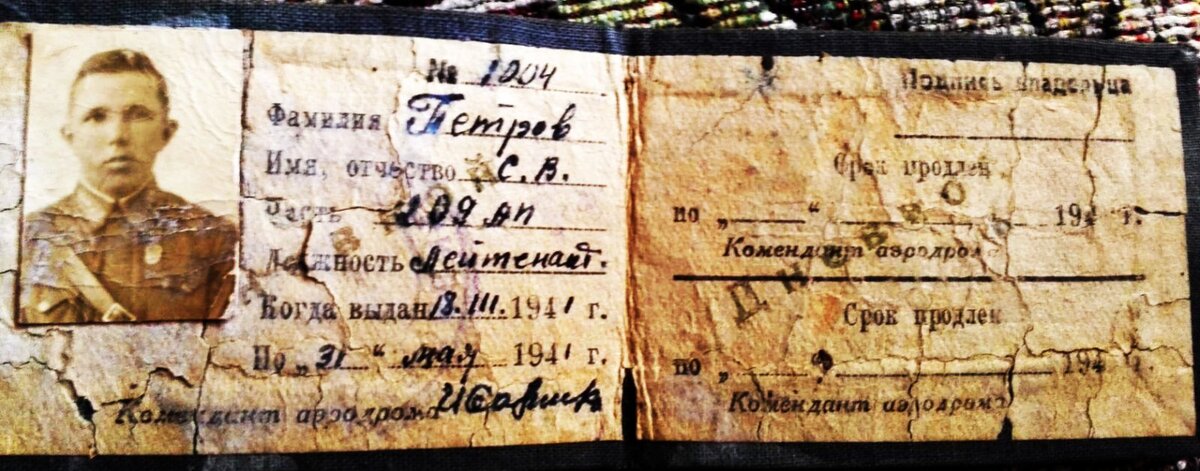 № 1204
Фамилия Петров
Имя, отчество С.В.
Часть 209 АП
Должность Лейтенант.
Когда выдан 18.III.1941 г.
По „31“ мая 1941 г.
Комендант аэродрома
Подпись владельца
Срок продлен
по „ “ 194 г.
Комендант аэродрома
Срок продлен
по „ “ 194 г.
Комендант аэродрома